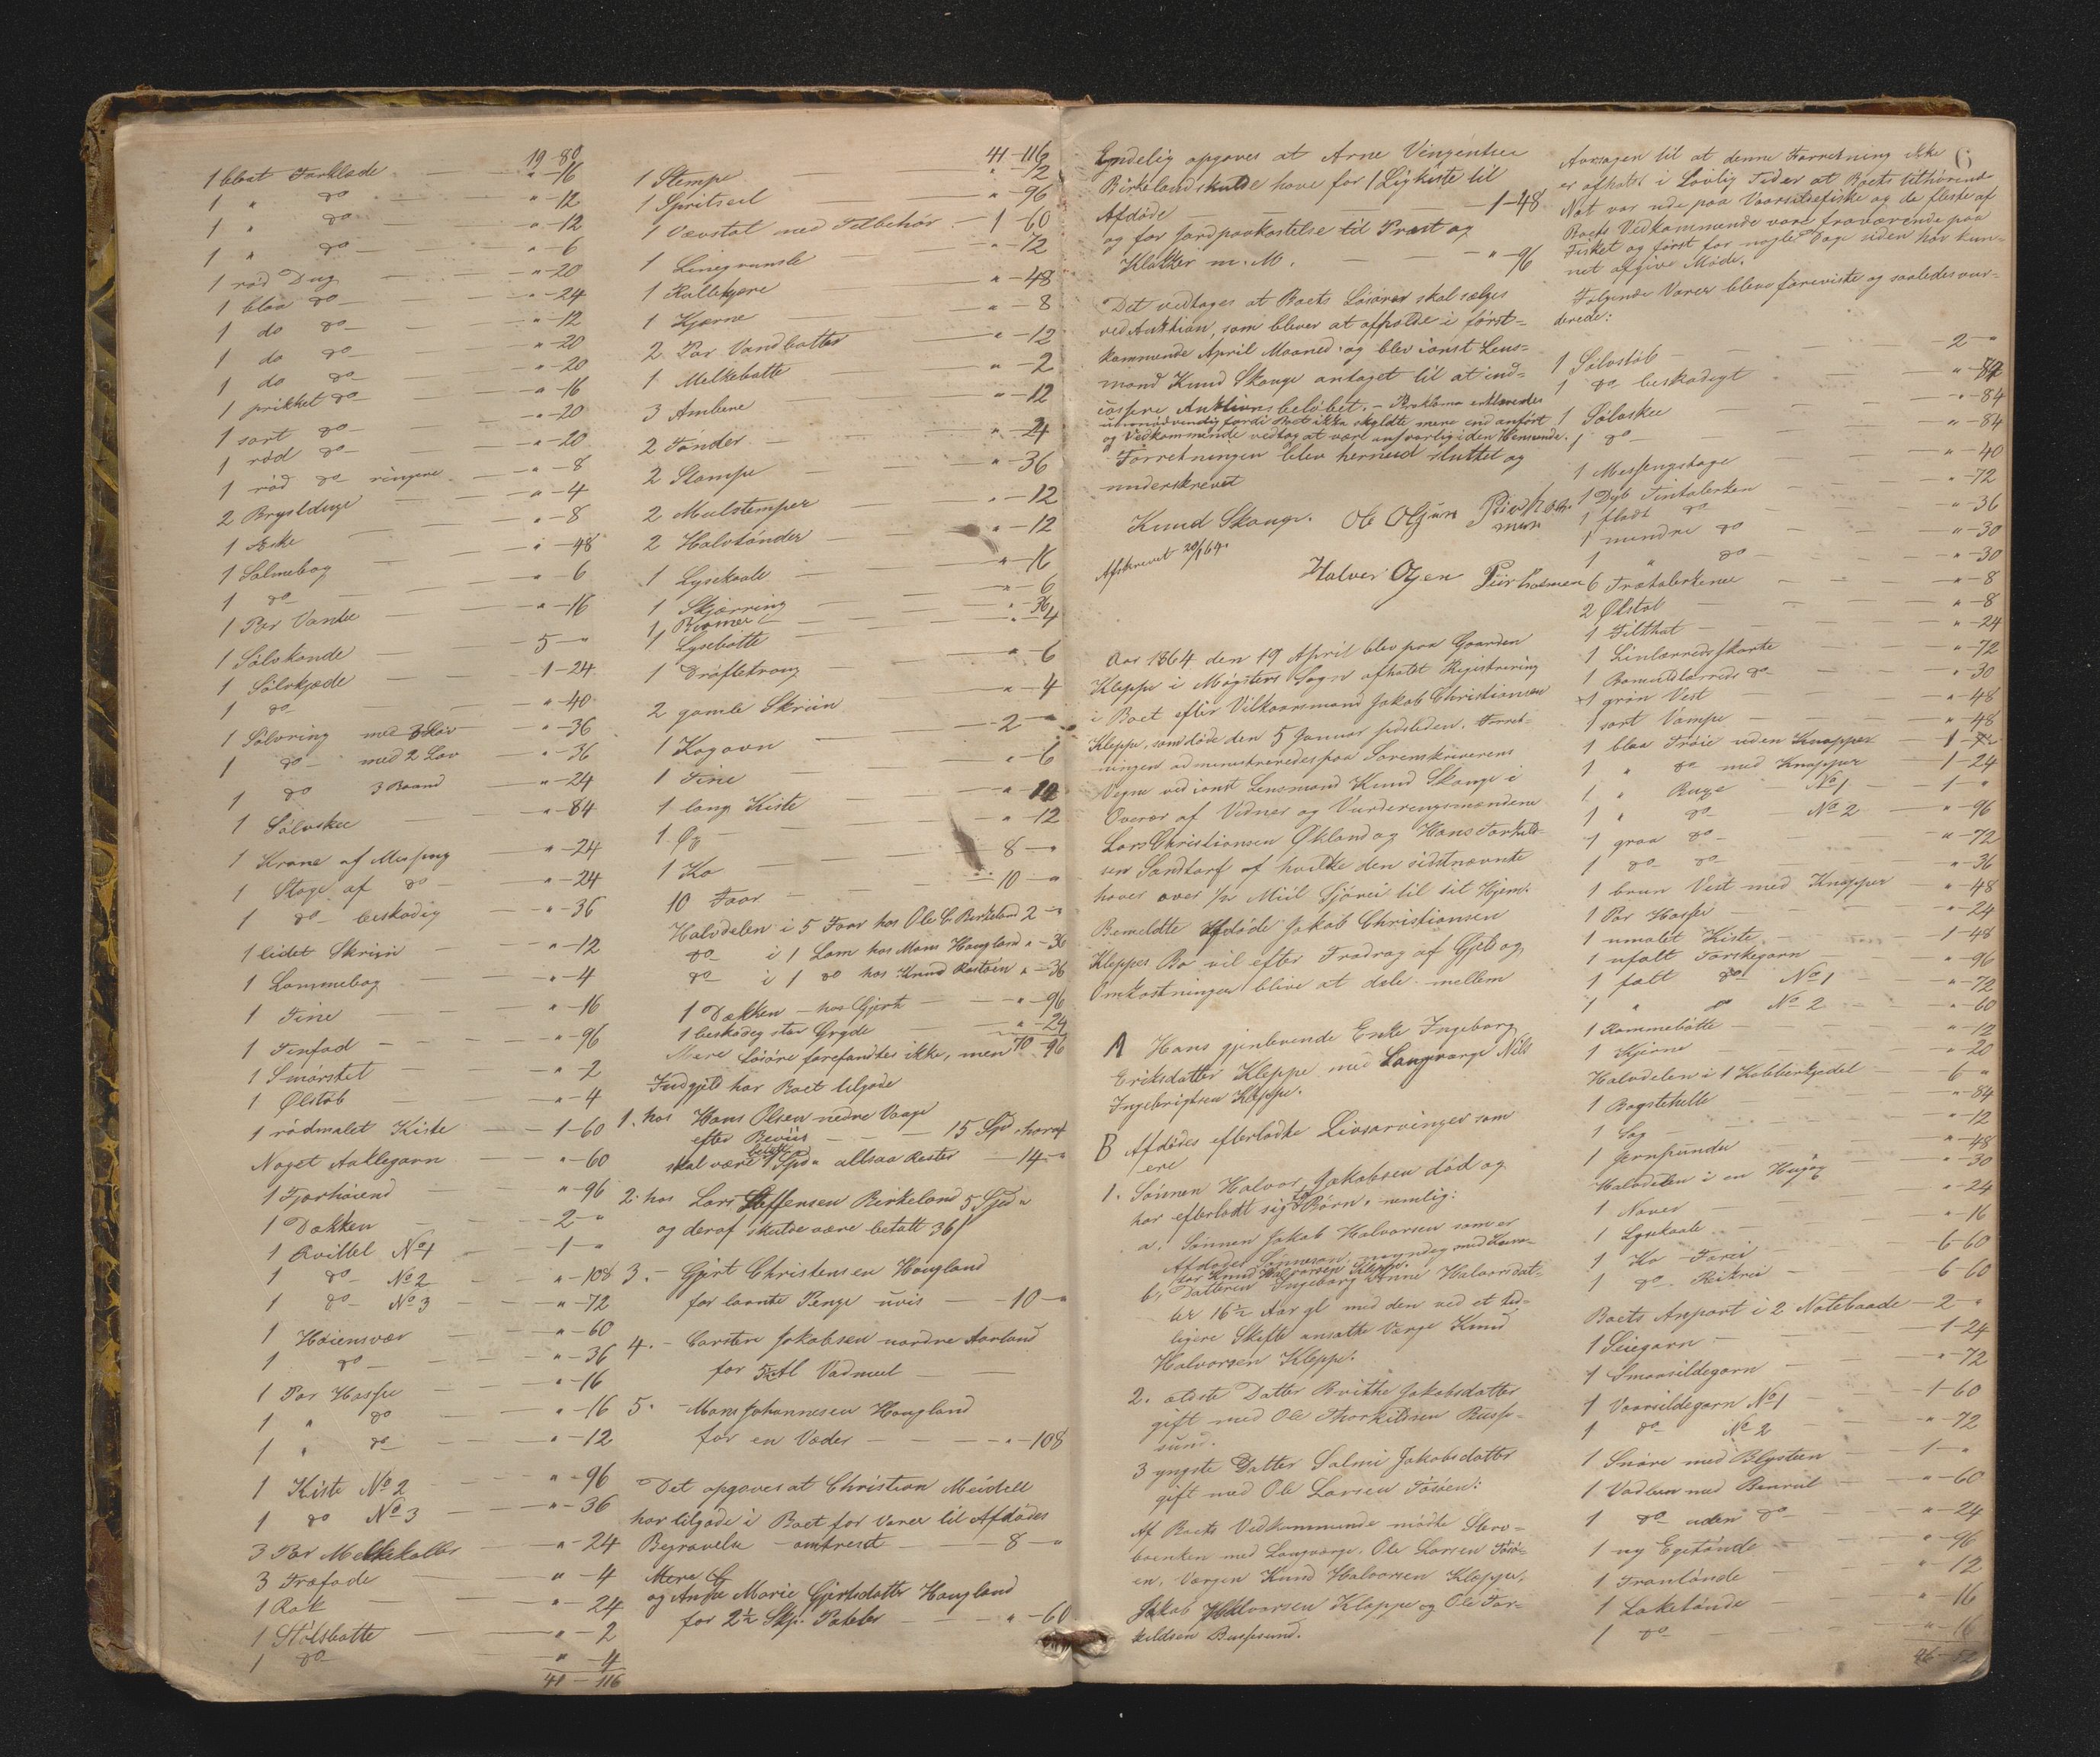 19-80
1 blaat Forklæde - "-16
1 " do - "-12
1 " do - "-12
1 " do - "-6
1 rød Dug - "-20
1 blaa do - "-24
1 do do - "-12
1 do do - "-20
1 do do - "-20
1 prikket do - "-16
1 sort do - "-20
1 rød do - "-20
1 rød do ringere - "-8
2 Brystduge - "-4
1 Æske - "-8
1 Salmebog - "-48
1 do - "-6
1 Par Vanter - "-16
1 Sølvkande - 5-"
1 Sølvkjæde - 1-24
1 do - "-40
1 Sølvring med 3 Løv - "-36
1 do med 2 Løv - "-36
1 do 3 Baand - "-24
1 Sølvskee - "-84
1 Krane af Messing - "-24
1 Stage af do - "-24
1 do beskadig - "-36
1 lidet Skriin - "-12
1 Lommebog - "-4
1 Tine - "-16
1 Tinfad - "-96
1 Smørstet - "-2
1 Ølstøb - "-4
1 rødmalet Kiste - 1-60
Noget Aaklegarn - "-60
1 Fjærhøiend - "-96
1 Dækken - 2-"
1 Qvittel No 1 - 1-"
1 do No 2 - "-108
1 do No 3 - "-72
1 Høiensvær - "-60
1 do - "-36
1 Par Hosser - "-16
1 " do - "-16
1 " do - "-12
1 Kiste No 2 - "-96
1 do No 3 - "-36
3 Par Melkekoller - "-24
3 Træfade - "-4
1 Rok - "-24
1 Stølsbøtte - "-2
1 do - "-4
41-116
41-116
1 Stampe - "-12
1 Spritseil - "-96
1 Vævstol med Tilbehør - 1-60
1 Linegrunsle - "-72
1 Rullekjære - "-48
1 Kjærne - "-8
2 Par Vandbøtter - "-12
1 Melkebøtte - "-2
3 Ambene - "-12
2 Tønder - "-24
2 Stampe - "-36
2 Meelstamper - "-12
2 Halvtønder - "-12
1 Lysekaale - "-16
1 Skjærring - "-6
1 Bismer - "-36
1 Lysebøtte - "-4
1 Drøfletroug - "-6
2 gamle Skriin - "-4
1 Kogovn - 2-"
1 Tine - "-6
1 lang Kiste - "-12
1 Øg - "-12
1 Ko - 8-"
10 Faar - 10-"
Halvdelen i 5 Faar hos Ole C. Birkeland 2-"
do i 1 Lam hos Mons Hougland "-36
do i 1 do hos Knud Rostøen "-36
1 Dækken - hos Gjert - "-96
1 beskadig stor Gryde - "-24
Mere Løsøre forefandtes ikke, men 70-96
Indgjeld har Boet tilgode
1. hos Hans Olsen nedre Vaage
efter Beviis - 15 Spd hvoraf
betalt
skal være 1 Spd altsaa Rester - 14-"
2. hos Lars Steffensen Birkeland 5 Spd "
og deraf skulde være betalt 36 s
3. - Gjert Christensen Hougland
for laante Penge uvis - 10-"
4. - Carsten Jakobsen nordre Aarland
for 5 Al Vadmeel -
5. - Mons Johannesen Hougland
for en Væder - "-108
Det opgaves at Christian Meidell
har tilgode i Boet for Varer til Afdødes
Begravelse omtrent - 8-"
Mere
og Anne Marie Gjertsdatter Hougland
for 2½ Skp. Poteter - "-60
Endelig opgaves at Arne
Birkeland skulde have for 1 Ligkiste til
Afdøde - 1-48
og for Jordpaakastelse til Præst og
Klokker m. M. - "-96
Det vedtoges at Boets Løsøre skal sælges
ved Auktion, som bliver at afholde i først-
kommende April Maaned og blev const Lens-
mand Knud Skauge antaget til at ind-
cassere Auktionsbeløbet. - Proklama erklæredes
unødvendig fordi Boet ikke skyldte mere end anført
og Vedkommende vedtog at være ansvarlig i den Henseende.
Forretningen blev hermed sluttet og
underskrevet
Knud Skauge. Ole Olsen
Afskrevet 20/4 64.
Halvor Olsen
Aar 1864 den 19 April blev paa Gaarden
Kleppe i Møgsters Sogn afholdt Registrering
i Boet efter Vilkaarsmand Jakob Christiansen
Kleppe, som døde den 5 Januar sidstleden. Forret-
ningen administreredes paa Sorenskriverens
Vegne ved const Lensmand Knud Skauge i
Overær af Vidner og Vurderingsmændene
Lars Christiansen Økland og Hans Torkild-
sen Sandtorf af hvilke den sidstnævnte
haver over ½ Miil Sjøvei til sit Hjem.
Bemeldte Afdøde Jakob Christiansen
Kleppes Bo vil efter Fradrag af Gjeld og
Omkostninger blive at dele mellem
A Hans gjenlevende Enke Ingeborg
Eriksdatter Kleppe med Laugværge Nils
Ingebrigtsen Kleppe.
B Afdødes efterladte Livsarvinger som
ere
1. Sønnen Halvor Jakobsen død og
har efterladt sig 2 Børn, nemlig:
a. Sønnen Jakob Halvorsen som er
Afdødes Sønnesøn, myndig med Kura-
tor Knud Halvorsen Kleppe.
b. Datteren Ingeborg Anne Halvorsdat-
ter 16½ Aar gl med den ved et tid-
ligere Skifte ansatte Værge Knud
Halvorsen Kleppe.
2. ældste Datter Brithe Jakobsdatter
gift med Ole Thorkildsen Buss-
sund.
3 yngste Datter Salmi Jakobsdatter
gift med Ole Larsen Tøsøen:
Af Boets Vedkommende mødte Sterv-
boenken med Laugværge. Ole Larsen Tøsø-
en, Værgen Knud Halvorsen Kleppe,
Jakob Halvorsen Kleppe og Ole Tor-
kildsen Bussesund.
6
Aarsagen til at denne Forretning ikke
er afholdt i Lovlig Tid er at Boets tilhørende
Not var ude paa Vaarsildfiske og de fleste af
Boets Vedkommende vare fraværende paa
Fisket og først for nogle Dage siden har kun-
net afgive Møde.
Følgende Varer bleve foreviste og saaledes vur-
derede:
1 Sølvstøb - 2-"
1 do beskadigt - "-84
1 Sølvskee - "-84
1 do - "-84
1 Messingstage - "-40
1 Dyb Tintalerken - "-72
1 fladt do - "-36
1 mindre do - "-30
1 " do - "-30
6 Trætalerkener - "-8
2 Ølstøb - "-8
1 Filthat - "-24
1 Linlærredsskjorte - "-72
1 Bomuldlærreds do - "-30
1 grøn Vest - "-48
1 sort Vampe - "-48
1 blaa Trøie uden Knapper - 1-72
1 " do med Knapper - 1-24
1 " Buxe No 1 - 1-"
1 " do No 2 - "-96
1 graa do - "-72
1 do do - "-36
1 brun Vest med Knapper - "-48
1 Par Hosser - "-24
1 umalet Kiste - 1-48
1 ufalt Torskegarn - "-96
1 falt do No 1 - "-72
1 " do No 2 - "-60
1 Rømmebøtte - "-12
1 Kjerne - "-20
Halvdelen i 1 Kobberkjedel - 6-"
1 Bagstehelle - "-84
1 Sag - "-12
1 Jernpunder - "-48
Halvdelen i en Huggøx - "-30
1 Naver - "-24
1 Lysekaale - "-16
1 Ko Farei - 6-60
1 do Rikrei - 6-60
Boets Anpart i 2 Notebaade - 2-"
1 Seiegarn - 1-24
1 Smaasildegarn - "-72
1 Vaarsildegarn No 1 - 1-60
1 do No 2 - "-72
1 Snøre med Blysteen - 1-"
1 Vadbeen med Beenriil - "-60
1 do uden do - "-24
1 ny Egetønde - "-96
1 Trantønde - "-12
1 Laketønde - "-16
1 do - "-16
46-52